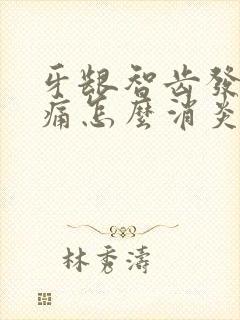 牙龈智齿發
痛怎麼消炎
林秀濤